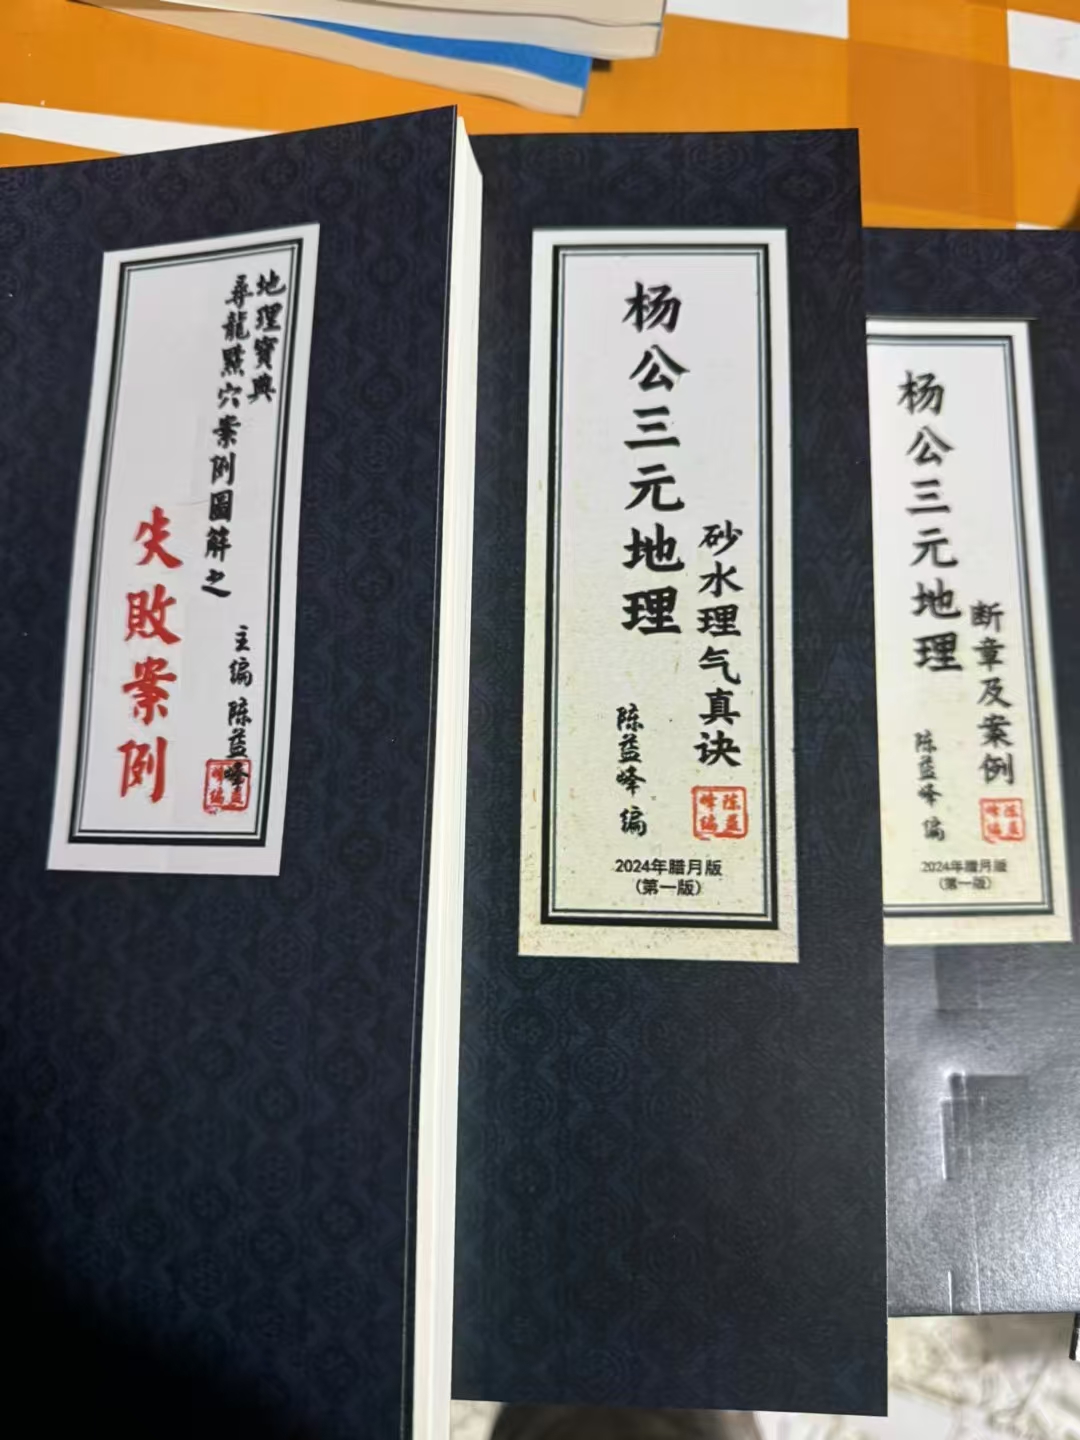 地理寶典
尋龍點穴案例圖解之
失敗案例
主编 陈益峰
杨公三元地理
砂水理气真诀
陈益峰 编
陈益峰编
2024年腊月版
(第一版)
杨公三元地理
断章及案例
陈益峰 编
陈益峰编
2024年腊月版
(第一版)